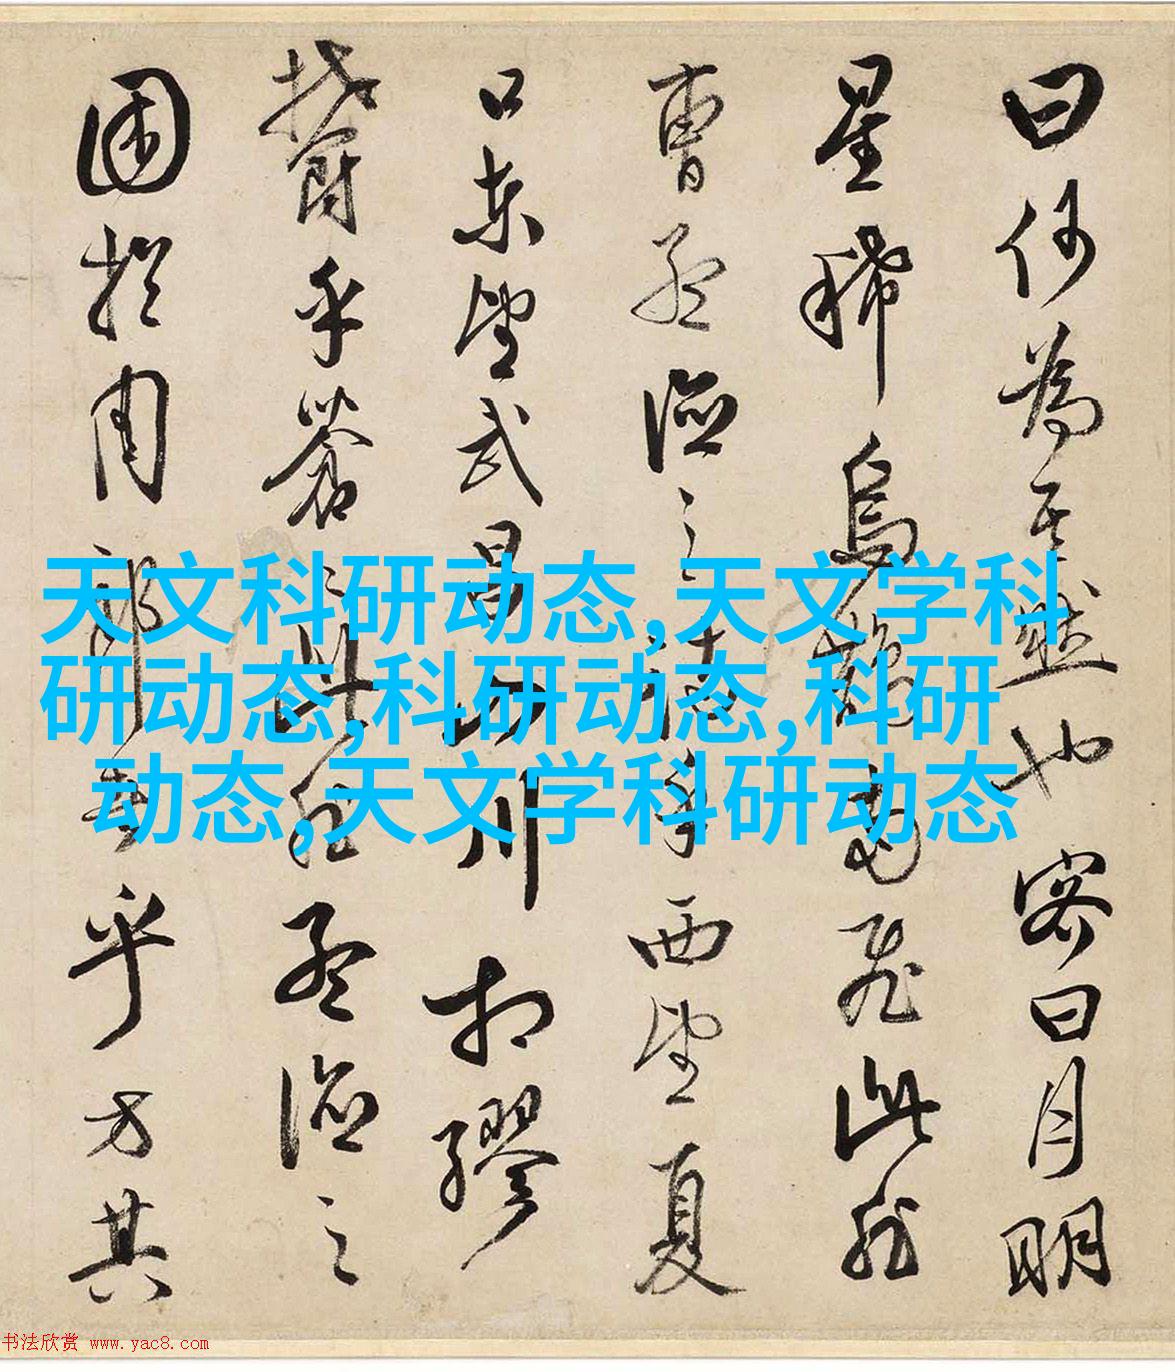 曰何為其然也客曰月明
星稀烏鵲南飛此非
曹孟德之詩乎西望夏
口東望武昌山川相繆
鬱乎蒼〻此非孟德之
困於周郎者乎方其
天文科研动态,天文学科
研动态,科研动态,科研
动态,天文学科研动态
书法欣赏 www.yac8.com